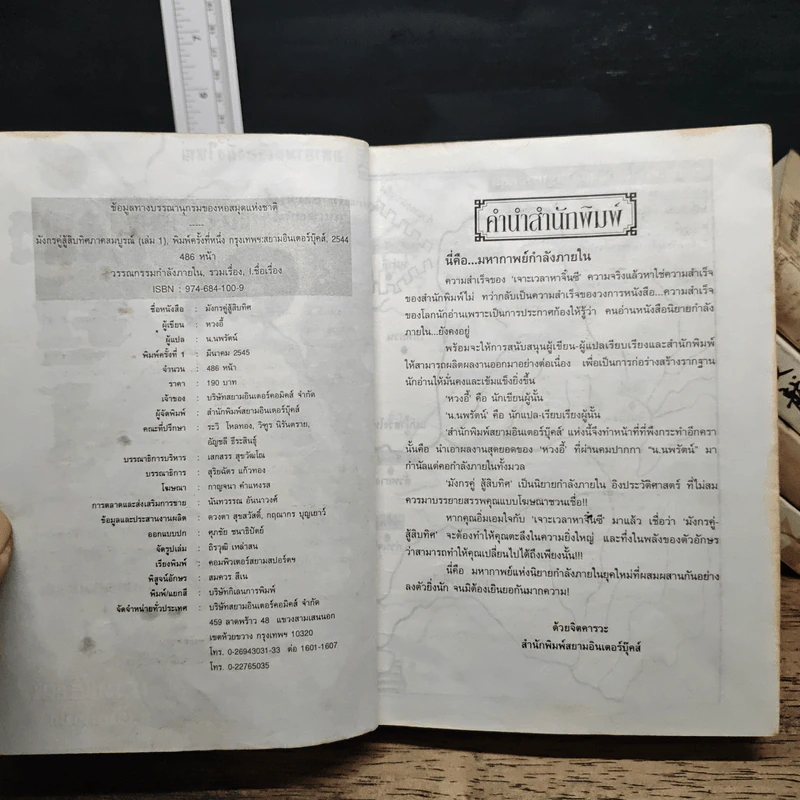 ข้อมูลทางบรรณานุกรมของหอสมุดแห่งชาติ
-----
มังกรคู่สู้สิบทิศภาคสมบูรณ์ (เล่ม 1), พิมพ์ครั้งที่หนึ่ง กรุงเทพฯ:สยามอินเตอร์บุ๊คส์, 2544
486 หน้า
วรรณกรรมกำลังภายใน, รวมเรื่อง, I.ชื่อเรื่อง
ISBN : 974-684-100-9
ชื่อหนังสือ : มังกรคู่สู้สิบทิศ
ผู้เขียน : หวงอี้
ผู้แปล : น.นพรัตน์
พิมพ์ครั้งที่ 1 : มีนาคม 2545
จำนวน : 486 หน้า
ราคา : 190 บาท
เจ้าของ : บริษัทสยามอินเตอร์คอมิคส์ จำกัด
ผู้จัดพิมพ์ : สำนักพิมพ์สยามอินเตอร์บุ๊คส์
คณะที่ปรึกษา : ระวิ โหลทอง, วิฑูร นิรันตราย,
อัญชลี ธีระสินธุ์
บรรณาธิการบริหาร : เสกสรร สุขวัฒโณ
บรรณาธิการ : สุริยฉัตร แก้วทอง
โฆษณา : กาญจนา คำแหงรส
การตลาดและส่งเสริมการขาย : นันทวรรณ อันนาวงศ์
ข้อมูลและประสานงานผลิต : ดวงตา สุขสวัสดิ์, กฤณากร บุญเยาว์
ออกแบบปก : ศุภชัย ชนาธิปัตย์
จัดรูปเล่ม : ธิรวุฒิ เหล่าสน
เรียงพิมพ์ : คอมพิวเตอร์สยามสปอร์ตฯ
พิสูจน์อักษร : สมควร สีเน
พิมพ์/แยกสี : บริษัทกิเลนการพิมพ์
จัดจำหน่ายทั่วประเทศ : บริษัทสยามอินเตอร์คอมิคส์ จำกัด
459 ลาดพร้าว 48 แขวงสามเสนนอก
เขตห้วยขวาง กรุงเทพฯ 10320
โทร. 0-26943031-33 ต่อ 1601-1607
โทร. 0-22765035
คำนำสำนักพิมพ์
นี่คือ...มหากาพย์กำลังภายใน
ความสำเร็จของ 'เจาะเวลาหาจิ๋นซี' ความจริงแล้วหาใช่ความสำเร็จ
ของสำนักพิมพ์ไม่ ทว่ากลับเป็นความสำเร็จของวงการหนังสือ...ความสำเร็จ
ของโลกนักอ่านเพราะเป็นการประกาศก้องให้รู้ว่า คนอ่านหนังสือนิยายกำลัง
ภายใน...ยังคงอยู่
พร้อมจะให้การสนับสนุนผู้เขียน-ผู้แปลเรียบเรียงและสำนักพิมพ์
ให้สามารถผลิตผลงานออกมาอย่างต่อเนื่อง เพื่อเป็นการก่อร่างสร้างรากฐาน
นักอ่านให้มั่นคงและเข้มแข็งยิ่งขึ้น
'หวงอี้' คือ นักเขียนผู้นั้น
'น.นพรัตน์' คือ นักแปล-เรียบเรียงผู้นั้น
'สำนักพิมพ์สยามอินเตอร์บุ๊คส์' แห่งนี้จึงทำหน้าที่ที่พึงกระทำอีกครา
นั้นคือ นำเอาผลงานสุดยอดของ 'หวงอี้' ที่ผ่านคมปากกา "น.นพรัตน์" มา
กำนัลแด่คอกำลังภายในทั้งมวล
'มังกรคู่ สู้สิบทิศ' เป็นนิยายกำลังภายใน อิงประวัติศาสตร์ ที่ไม่สม
ควรมาบรรยายสรรพคุณแบบโฆษณาชวนเชื่อ!!
หากคุณอิ่มเอมใจกับ 'เจาะเวลาหาจิ๋นซี' มาแล้ว เชื่อว่า 'มังกรคู่-
สู้สิบทิศ' จะต้องทำให้คุณตะลึงในความยิ่งใหญ่ และทึ่งในพลังของตัวอักษร
ว่าสามารถทำให้คุณเปลี่ยนไปได้ถึงเพียงนั้น!!!
นี่คือ มหากาพย์แห่งนิยายกำลังภายในยุคใหม่ที่ผสมผสานกันอย่าง
ลงตัวยิ่งนัก จนมิต้องเยินยอกันมากความ!
ด้วยจิตคารวะ
สำนักพิมพ์สยามอินเตอร์บุ๊คส์